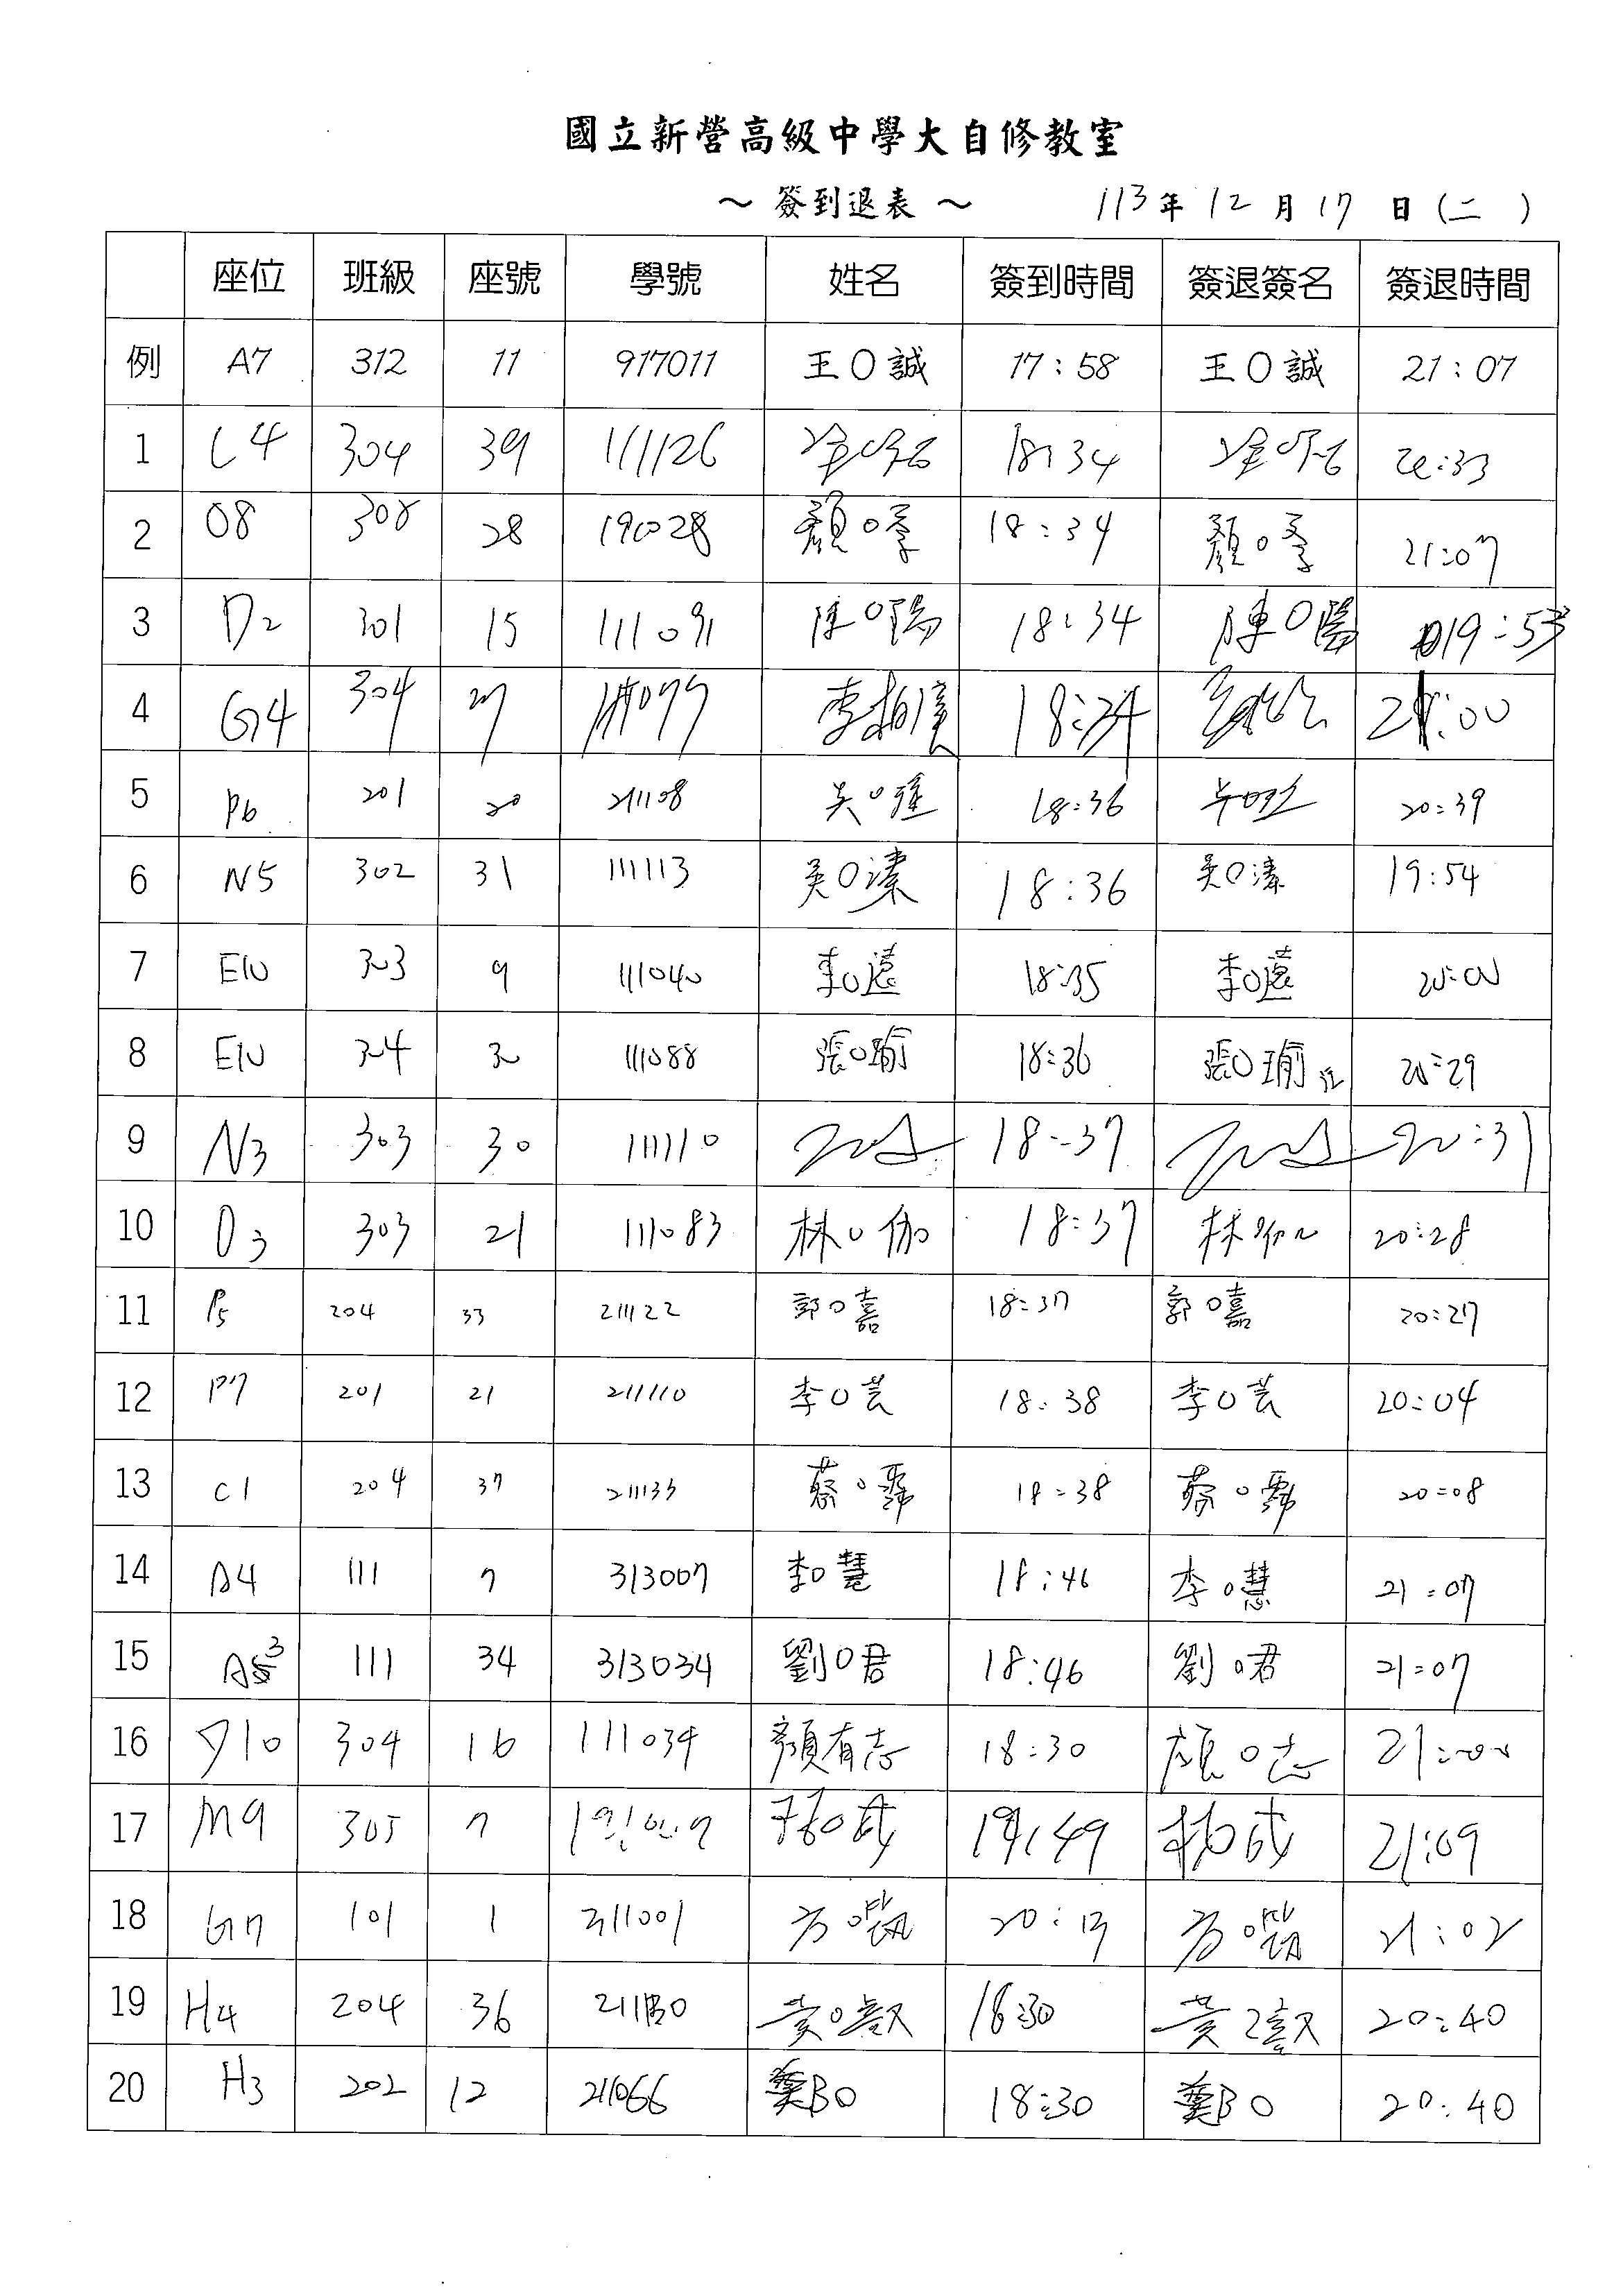 國立新營高級中學大自修教室
～ 簽到退表 ～ 113年12月17日(二)
座位 班級 座號 學號 姓名 簽到時間 簽退簽名 簽退時間
例 A7 312 11 917011 王O誠 17:58 王O誠 21:07
1 C4 304 39 111126 18:34
2 O8 308 28 191028 顏O季 18:34 顏O季 21:07
3 D2 301 15 111091 陳O陽 18:34 陳O陽 19:53
4 G4 304 27 111077 18:34 21:00
5 P6 201 20 211108 吳O 18:36 20:39
6 N5 302 31 111113 吳O溱 18:36 吳O溱 19:54
7 E10 303 9 111040 李O 18:35 李O 20:00
8 E10 304 30 111088 張O瑜 18:36 張O瑜 20:29
9 N3 303 30 111110 18:37 20:31
10 O3 303 21 111083 林O伽 18:37 林O伽 20:28
11 P5 204 33 211122 郭O嘉 18:37 郭O嘉 20:27
12 P7 201 21 211110 李O芸 18:38 李O芸 20:04
13 C1 204 37 211133 蔡O霈 18:38 蔡O霈 20:08
14 A4 111 7 313007 李O慧 18:46 李O慧 21:07
15 A3 111 34 313034 劉O君 18:46 劉O君 21:07
16 304 16 111034 顏有志 18:30 顏O志 21:00
17 M9 305 7 楊O成 19:49 楊O成 21:09
18 G7 101 1 311001 方O 20:17 方O 21:02
19 H4 204 36 211130 黃O 18:30 黃 20:40
20 H3 202 12 211066 18:30 20:40